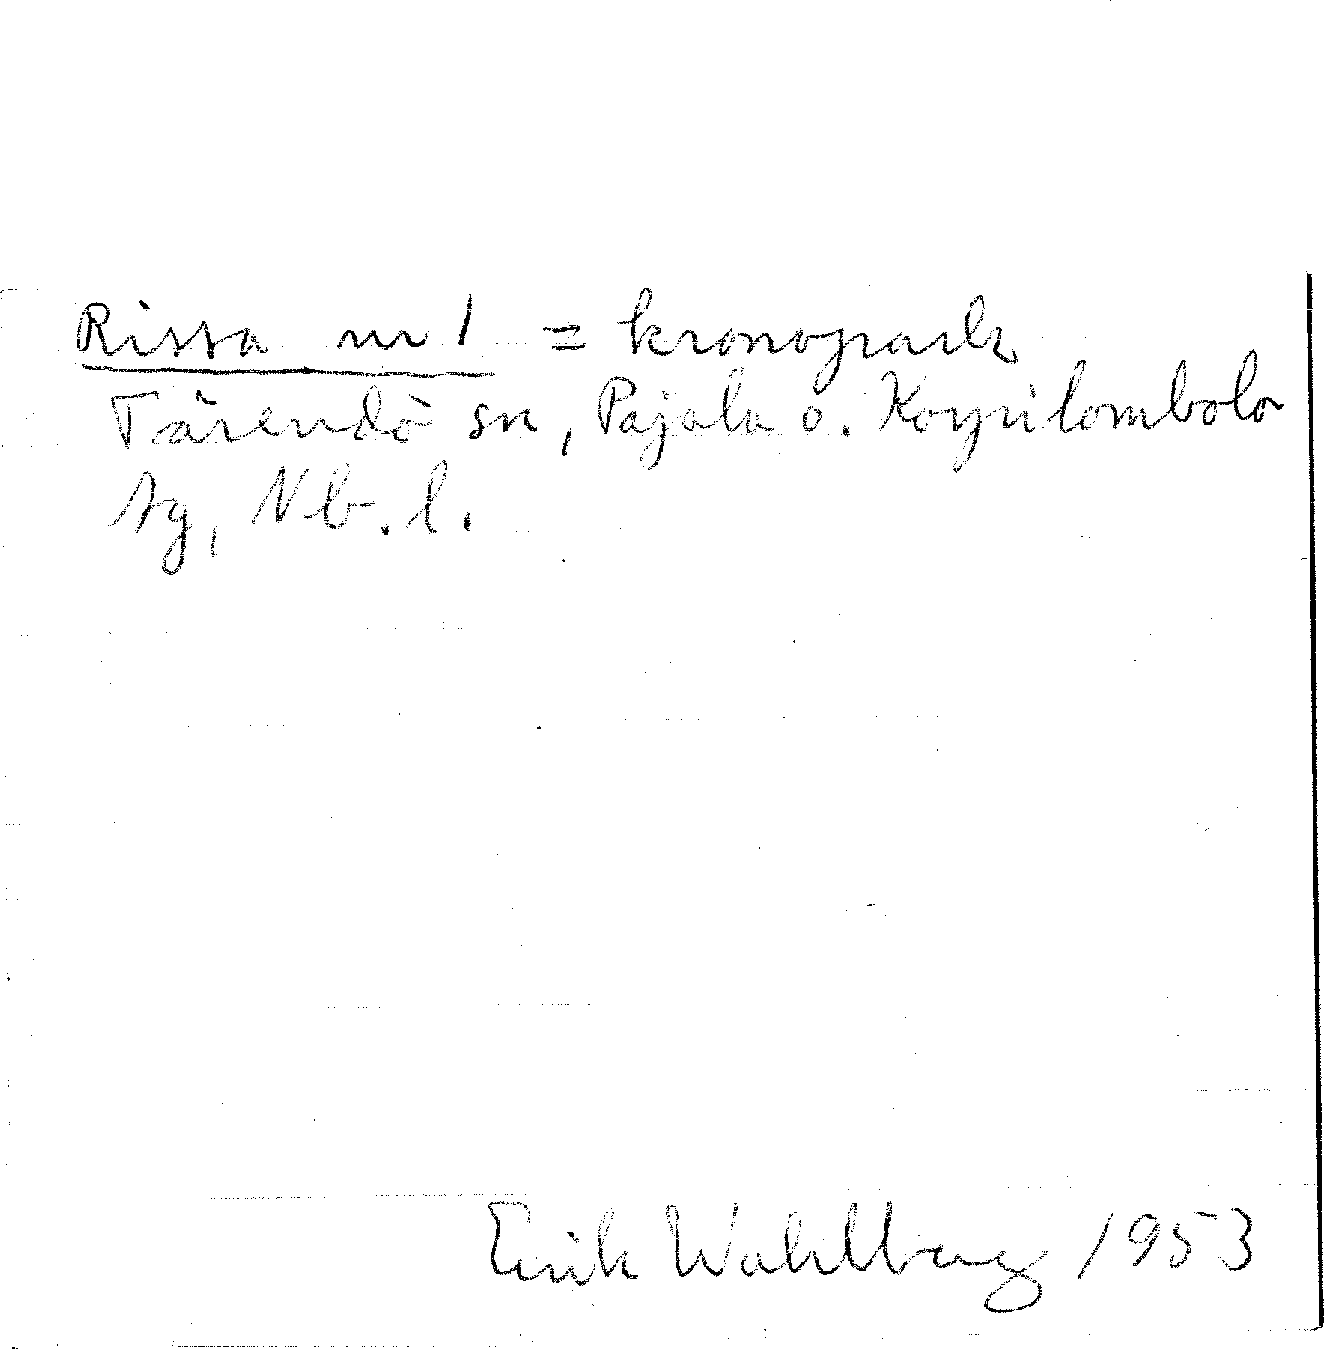 Rissa nr 1 = kronopark
Tärendö sn, Pajala o. Korpilombolo
tg, Nb. l.
Erik Wahlberg 1953